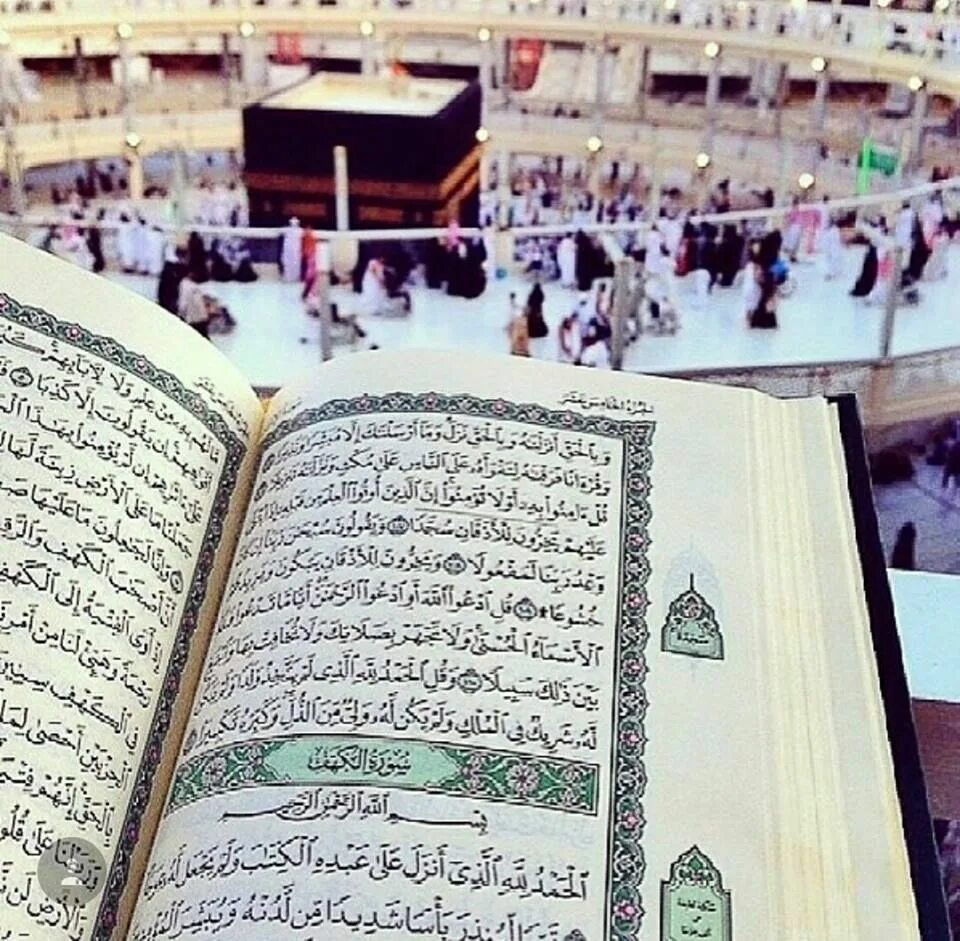 الجزء الخامس عشر
وَبِٱلْحَقِّ أَنزَلْنَٰهُ وَبِٱلْحَقِّ نَزَلَ وَمَآ أَرْسَلْنَٰكَ إِلَّا مُبَشِّرًا وَنَذِيرًا
وَقُرْءَانًا فَرَقْنَٰهُ لِتَقْرَأَهُۥ عَلَى ٱلنَّاسِ عَلَىٰ مُكْثٍ وَنَزَّلْنَٰهُ تَنزِيلًا
قُلْ ءَامِنُوا۟ بِهِۦٓ أَوْ لَا تُؤْمِنُوٓا۟ إِنَّ ٱلَّذِينَ أُوتُوا۟ ٱلْعِلْمَ مِن قَبْلِهِۦٓ إِذَا يُتْلَىٰ
عَلَيْهِمْ يَخِرُّونَ لِلْأَذْقَانِ سُجَّدًا ١٠٧ وَيَقُولُونَ سُبْحَٰنَ رَبِّنَآ إِن كَانَ
وَعْدُ رَبِّنَا لَمَفْعُولًا ١٠٨ وَيَخِرُّونَ لِلْأَذْقَانِ يَبْكُونَ وَيَزِيدُهُمْ
خُشُوعًا ۩ ١٠٩ قُلِ ٱدْعُوا۟ ٱللَّهَ أَوِ ٱدْعُوا۟ ٱلرَّحْمَٰنَ أَيًّا مَّا تَدْعُوا۟ فَلَهُ
ٱلْأَسْمَآءُ ٱلْحُسْنَىٰ وَلَا تَجْهَرْ بِصَلَاتِكَ وَلَا تُخَافِتْ بِهَا وَٱبْتَغِ
بَيْنَ ذَٰلِكَ سَبِيلًا ١١٠ وَقُلِ ٱلْحَمْدُ لِلَّهِ ٱلَّذِى لَمْ يَتَّخِذْ وَلَدًا وَلَمْ يَكُن
لَّهُۥ شَرِيكٌ فِى ٱلْمُلْكِ وَلَمْ يَكُن لَّهُۥ وَلِىٌّ مِّنَ ٱلذُّلِّ وَكَبِّرْهُ تَكْبِيرًۢا
سُورَةُ ٱلْكَهْفِ
بِسْمِ ٱللَّهِ ٱلرَّحْمَٰنِ ٱلرَّحِيمِ
ٱلْحَمْدُ لِلَّهِ ٱلَّذِىٓ أَنزَلَ عَلَىٰ عَبْدِهِ ٱلْكِتَٰبَ وَلَمْ يَجْعَل لَّهُۥ عِوَجَا
بَأْسًا شَدِيدًا مِّن لَّدُنْهُ وَيُبَشِّرَ ٱلْمُؤْمِنِينَ
مَّا لَهُم بِهِۦ مِنْ عِلْمٍ وَلَا لِءَابَآئِهِمْ
إِن يَقُولُونَ إِلَّا كَذِبًا
لَّمْ يُؤْمِنُوا۟ بِهَٰذَا
جَعَلْنَا مَا عَلَى ٱلْأَرْضِ زِينَةً لَّهَا
وَإِنَّا لَجَٰعِلُونَ مَا عَلَيْهَا
أَنَّ أَصْحَٰبَ ٱلْكَهْفِ
إِذْ أَوَى ٱلْفِتْيَةُ إِلَى ٱلْكَهْفِ
رَحْمَةً وَهَيِّئْ لَنَا مِنْ أَمْرِنَا
فِى ٱلْكَهْفِ سِنِينَ
ٱلْحِزْبَيْنِ أَحْصَىٰ لِمَا
بِٱلْحَقِّ إِنَّهُمْ فِتْيَةٌ
وَرَبَطْنَا عَلَىٰ قُلُوبِهِمْ
وَٱلْأَرْضِ لَن